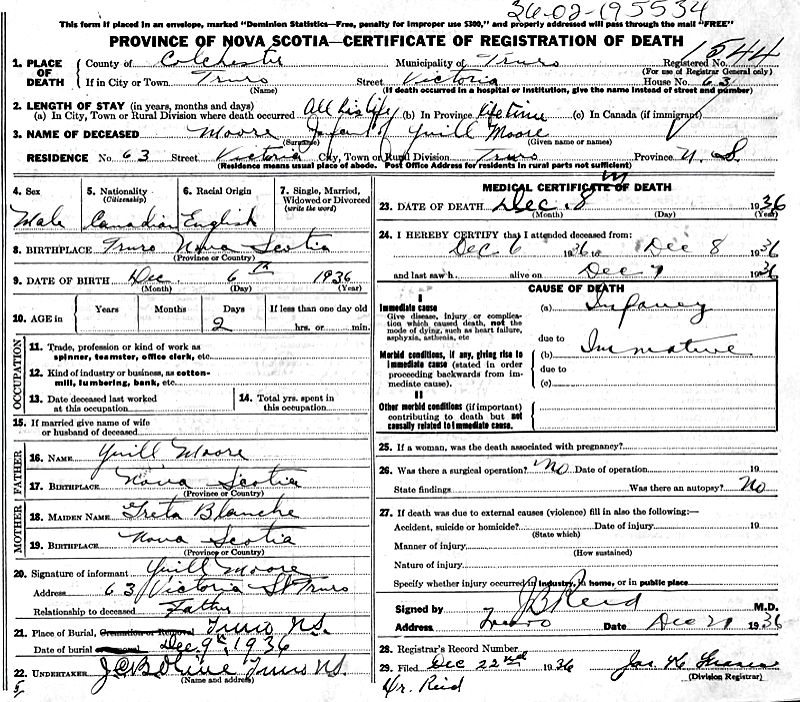 36-02-195534
This form if placed in an envelope, marked "Dominion Statistics—Free, penalty for improper use $300," and properly addressed will pass through the mail "FREE"
PROVINCE OF NOVA SCOTIA—CERTIFICATE OF REGISTRATION OF DEATH
1. PLACE OF DEATH
County of Colchester Municipality of Truro Registered No. 1544
(For use of Registrar General only)
If in City or Town Truro Street Victoria House No. 63
(Name) (If death occurred in a hospital or institution, give the name instead of street and number)
2. LENGTH OF STAY (in years, months and days)
(a) In City, Town or Rural Division where death occurred All his life (b) In Province lifetime (c) In Canada (if immigrant)
3. NAME OF DECEASED Moore Infant of Yuill Moore
(Surname) (Given name or names)
RESIDENCE No. 63 Street Victoria City, Town or Rural Division Truro Province N. S.
(Residence means usual place of abode. Post Office Address for residents in rural parts not sufficient)
4. Sex 5. Nationality (Citizenship) 6. Racial Origin 7. Single, Married, Widowed or Divorced (write the word)
Male Canadian English
8. BIRTHPLACE Truro Nova Scotia
(Province or Country)
9. DATE OF BIRTH Dec. 6th 1936
(Month) (Day) (Year)
10. AGE in Years Months Days If less than one day old
2 hrs. or min.
OCCUPATION
11. Trade, profession or kind of work as spinner, teamster, office clerk, etc.
12. Kind of industry or business, as cotton-mill, lumbering, bank, etc.
13. Date deceased last worked at this occupation
14. Total yrs. spent in this occupation
15. If married give name of wife or husband of deceased
FATHER
16. NAME Yuill Moore
17. BIRTHPLACE Nova Scotia
(Province or Country)
MOTHER
18. MAIDEN NAME Greta Blanche
19. BIRTHPLACE Nova Scotia
(Province or Country)
20. Signature of informant Yuill Moore
Address 63 Victoria St Truro
Relationship to deceased Father
21. Place of Burial, Cremation or Removal Truro N.S.
Date of burial Dec 9th 1936
22. UNDERTAKER Truro N.S.
(Name and address)
MEDICAL CERTIFICATE OF DEATH
23. DATE OF DEATH Dec. 8 1936
(Month) (Day) (Year)
24. I HEREBY CERTIFY that I attended deceased from:
Dec 6 1936 to Dec 8 1936
and last saw h alive on Dec 7 1936
CAUSE OF DEATH
I
Immediate cause
Give disease, injury or complication which caused death, not the mode of dying, such as heart failure, asphyxia, asthenia, etc
(a) Infancy
due to
Morbid conditions, if any, giving rise to immediate cause (stated in order proceeding backwards from immediate cause).
(b) Immature
due to
(c)
II
Other morbid conditions (if important) contributing to death but not causally related to immediate cause.
25. If a woman, was the death associated with pregnancy?
26. Was there a surgical operation? No Date of operation 19
State findings Was there an autopsy? No
27. If death was due to external causes (violence) fill in also the following:—
Accident, suicide or homicide? Date of injury 19
(State which)
Manner of injury
(How sustained)
Nature of injury
Specify whether injury occurred in industry, in home, or in public place
Signed by J B Reid M.D.
Address Truro Date Dec 21 1936
28. Registrar's Record Number
29. Filed Dec 22nd 1936 Jas. K. Fraser
(Division Registrar)
Dr. Reid